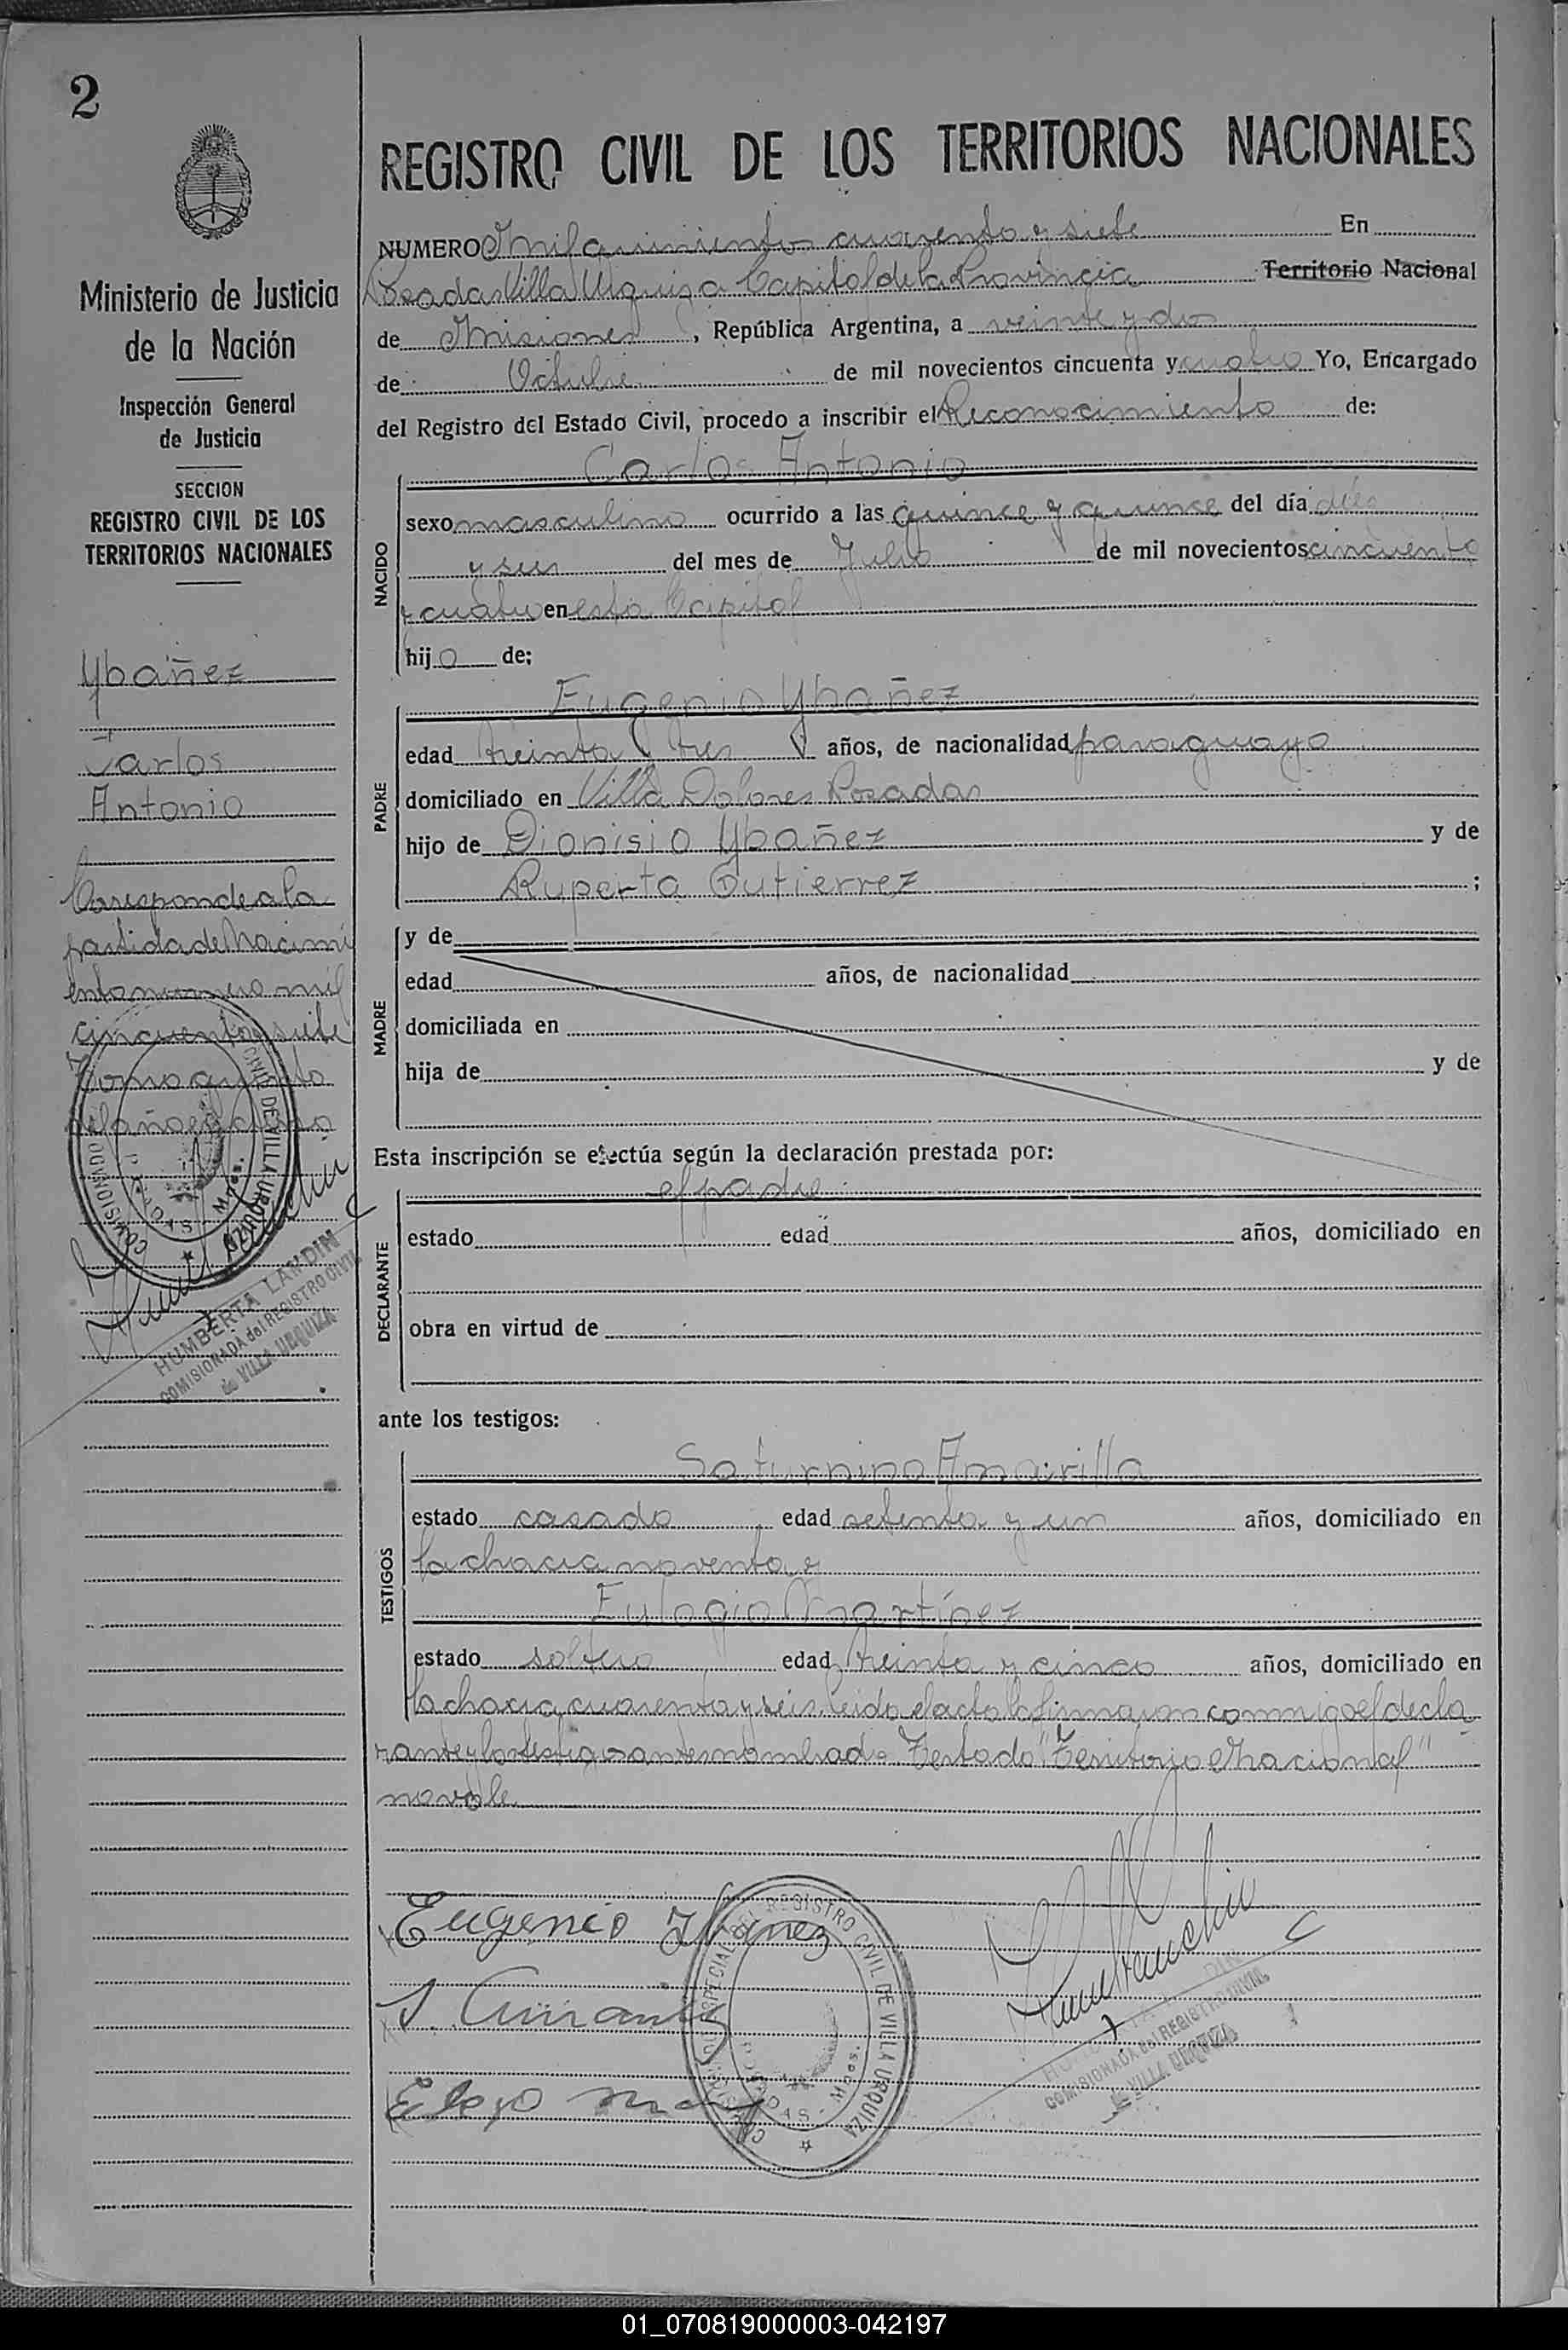 2
Ministerio de Justicia
de la Nación
Inspección General
de Justicia
SECCION
REGISTRO CIVIL DE LOS
TERRITORIOS NACIONALES
Ybañez
Carlos
Antonio
Corresponde a la
partida de Nacimi
ento numero mil
cincuenta y siete
Tomo quinto
del año en curso
HUMBERTA LANDIN
COMISIONADA del REGISTRO CIVIL
de VILLA URQUIZA
REGISTRO CIVIL DE LOS TERRITORIOS NACIONALES
NUMERO Mil quinientos cuarenta y siete En
Posadas Villa Urquiza Capital de la Provincia Territorio Nacional
de Misiones, República Argentina, a veinte y dos
de Octubre de mil novecientos cincuenta y cuatro Yo, Encargado
del Registro del Estado Civil, procedo a inscribir el Reconocimiento de:
NACIDO
Carlos Antonio
sexo masculino ocurrido a las quince y quince del día diez
y seis del mes de Julio de mil novecientos cincuenta
y cuatro en esta Capital
hijo de:
PADRE
Eugenio Ybañez
edad treinta y tres años, de nacionalidad paraguaya
domiciliado en Villa Dolores Posadas
hijo de Dionisio Ybañez y de
Ruperta Gutierrez ;
MADRE
y de
edad años, de nacionalidad
domiciliada en
hija de y de
Esta inscripción se efectúa según la declaración prestada por:
DECLARANTE
el padre
estado edad años, domiciliado en
obra en virtud de
ante los testigos:
TESTIGOS
Saturnino Amarilla
estado casado edad setenta y un años, domiciliado en
la chacra noventa y
Eulogio Martínez
estado soltero edad treinta y cinco años, domiciliado en
la chacra cuarenta y seis. Leido el acta la firmaron conmigo el decla
rante y los testigos antes nombrados. Testado "Territorio Nacional"
no vale
Eugenio Ibanez
COMISIONADA del REGISTRO CIVIL
de VILLA URQUIZA
01_070819000003-042197